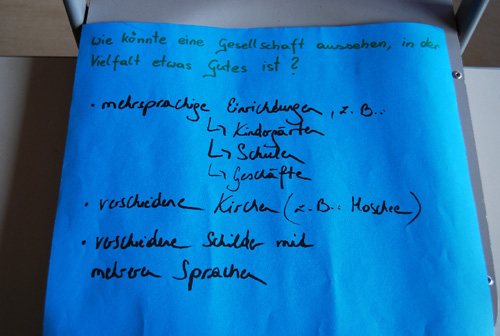 Wie könnte eine Gesellschaft aussehen, in der
Vielfalt etwas Gutes ist?
• mehrsprachige Einrichtungen, z.B.:
↳ Kindergärten
↳ Schulen
↳ Geschäfte
• verschiedene Kirchen (z.B.: Moschee)
• verschiedene Schilder mit
mehreren Sprachen